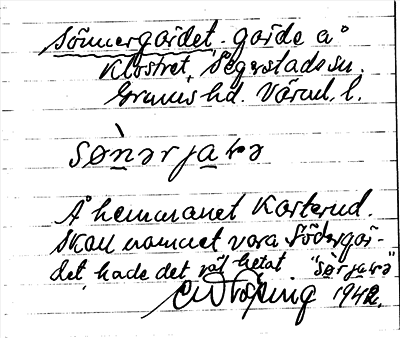 Sönnergärdet, gärde å
Klostret, Segerstads sn.
Grums hd. Värml. l.
sø̀nərjaɹə
Å hemmanet Karterud.
Skall namnet vara Södergär-
det, hade det väl hetat "sø̀rjaɹə"
1942.